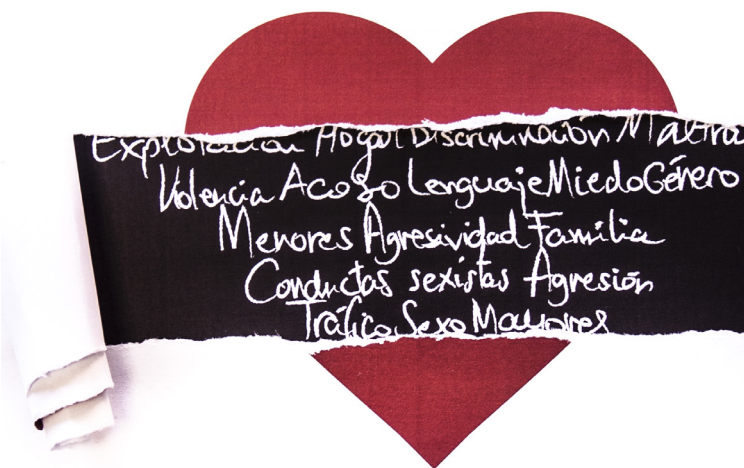 Explotación Hogar Discriminación Maltra
Violencia Acoso Lenguaje Miedo Género
Menores Agresividad Familia
Conductas sexistas Agresión
Tráfico Sexo Mayores